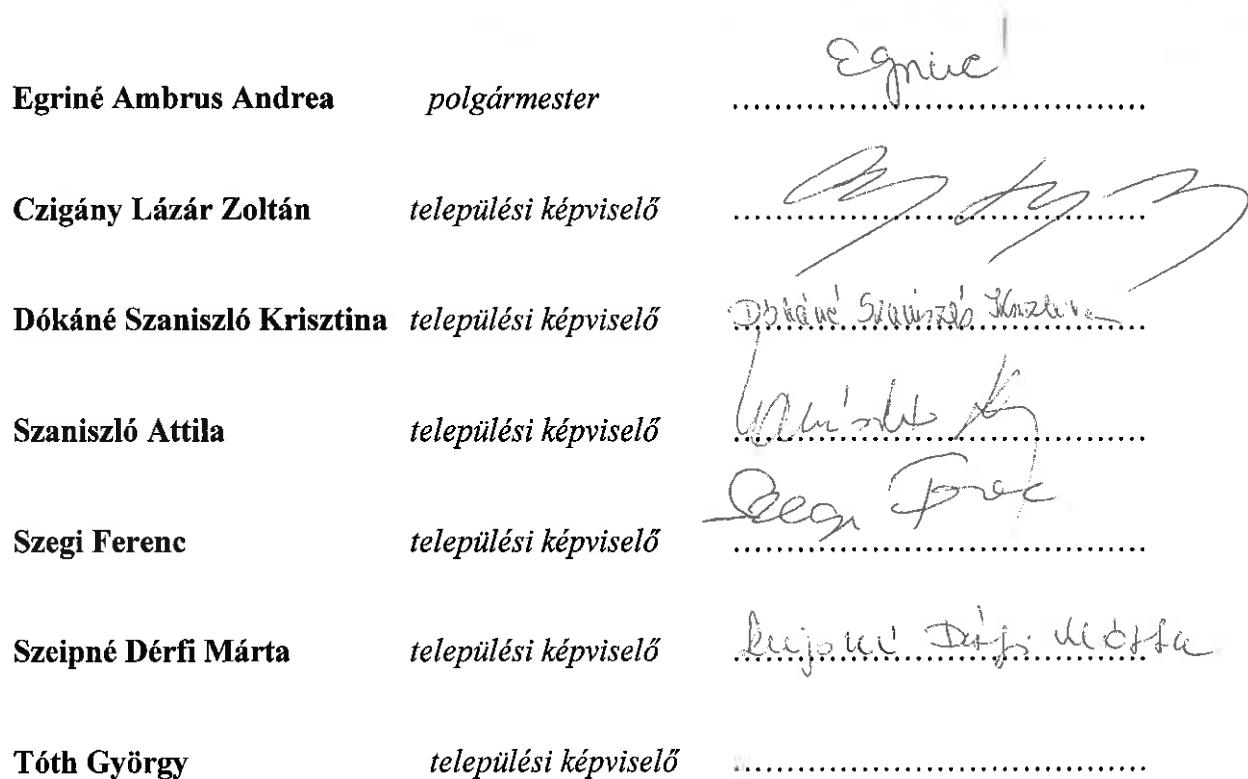 Egriné Ambrus Andrea polgármester ........................................ Egriné
Czigány Lázár Zoltán települési képviselő ........................................
Dókáné Szaniszló Krisztina települési képviselő ........................................ Dókáné Szaniszló Krisztina
Szaniszló Attila települési képviselő ........................................
Szegi Ferenc települési képviselő ........................................ Szegi Ferenc
Szeipné Dérfi Márta települési képviselő ........................................ Szeipné Dérfi Márta
Tóth György települési képviselő ........................................